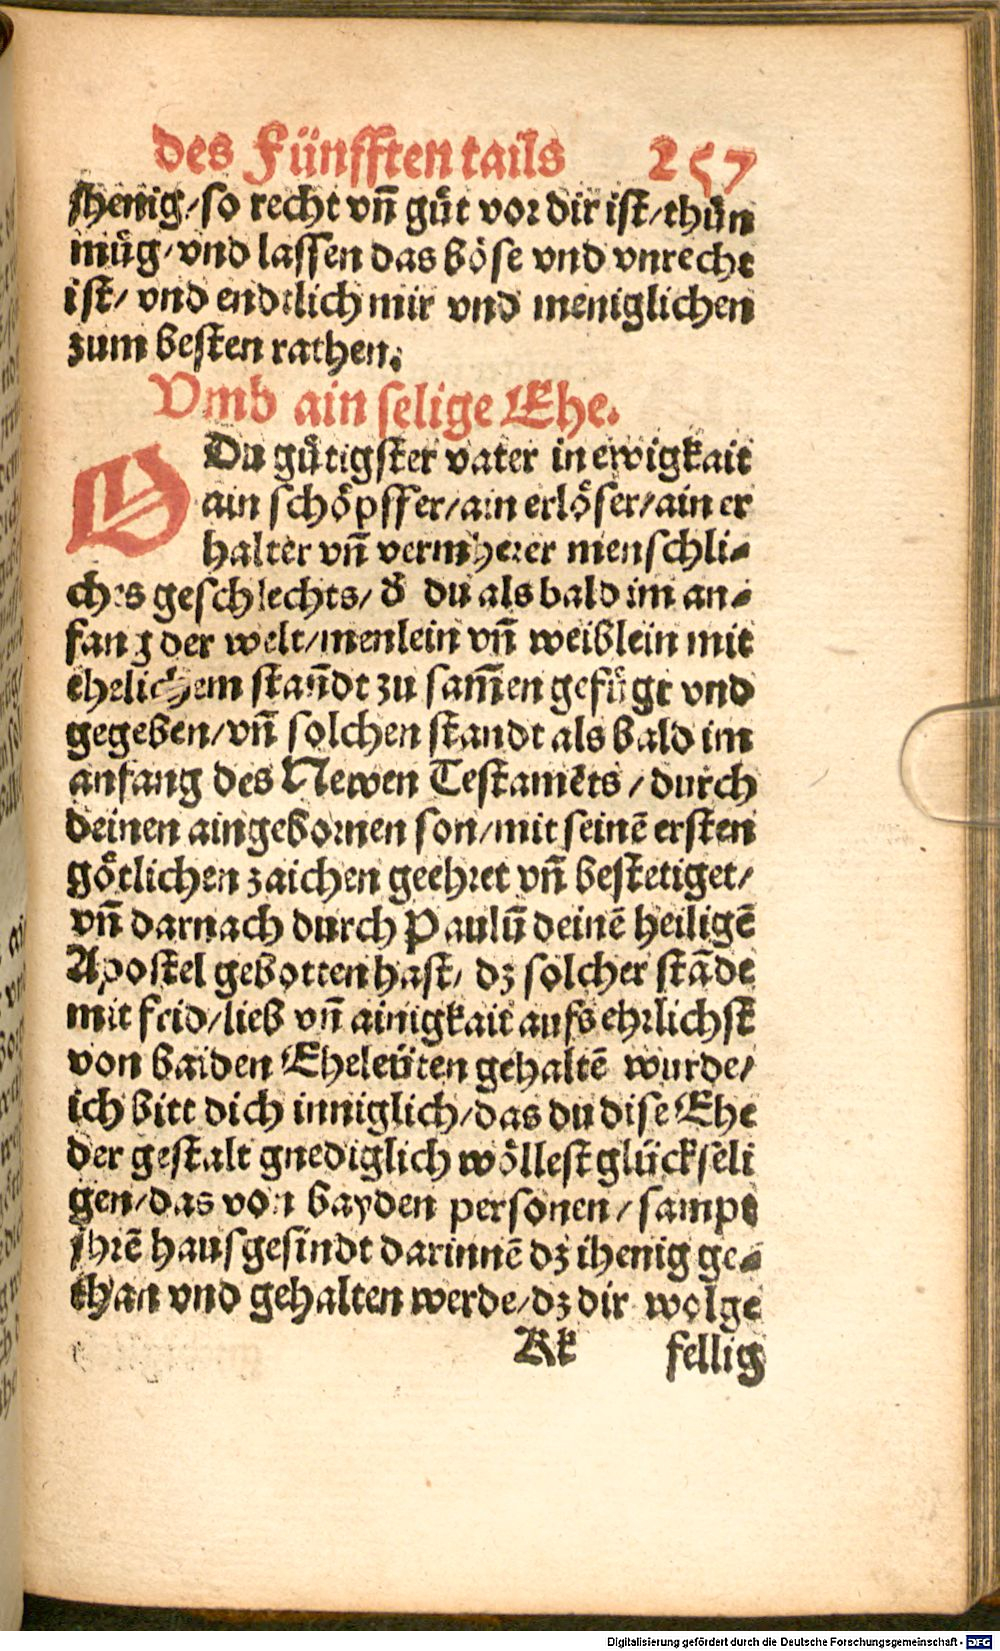 des Fünfften tails 257
jhenig/ so recht vnd̄ guͤt vor dir ist/ thuͤn
muͤg/ vnd lassen das böse vnd vnrecht
ist/ vnd endtlich mir vnd meniglichen
zum besten rathen.
Vmb ain selige Ehe.
O Du guͤtigster vater in ewigkait
ain schöpffer/ ain erlöser/ ain er
halter vn̄ vermherer menschli-
ches geschlechts/ d̓ du als bald im an-
fang der welt/ menlein vn̄ weiblein mit
ehelichem stan̄dt zu sam̄en gefuͤgt vnd
gegeben/ vn̄ solchen standt als bald im
anfang des Newen Testamēts / durch
deinen aingebornen son/ mit seinē ersten
goͤtlichen zaichen geehret vn̄ bestetiget/
vn̄ darnach durch Paulū deinē heiligē
Apostel gebotten hast/ dz solcher stādt
mit frid/ lieb vn̄ ainigkait aufs ehrlichst
von baiden Eheleüten gehaltē wurde/
ich bitt dich inniglich/ das du dise Ehe
der gestalt gnediglich wöllest glückseli
gen/ das von bayden personen / sampt
jhrē hausgesindt darinnē dz ihenig ge-
than vnd gehalten werde/ dz dir wolge
Kk fellig
Digitalisierung gefördert durch die Deutsche Forschungsgemeinschaft - DFG